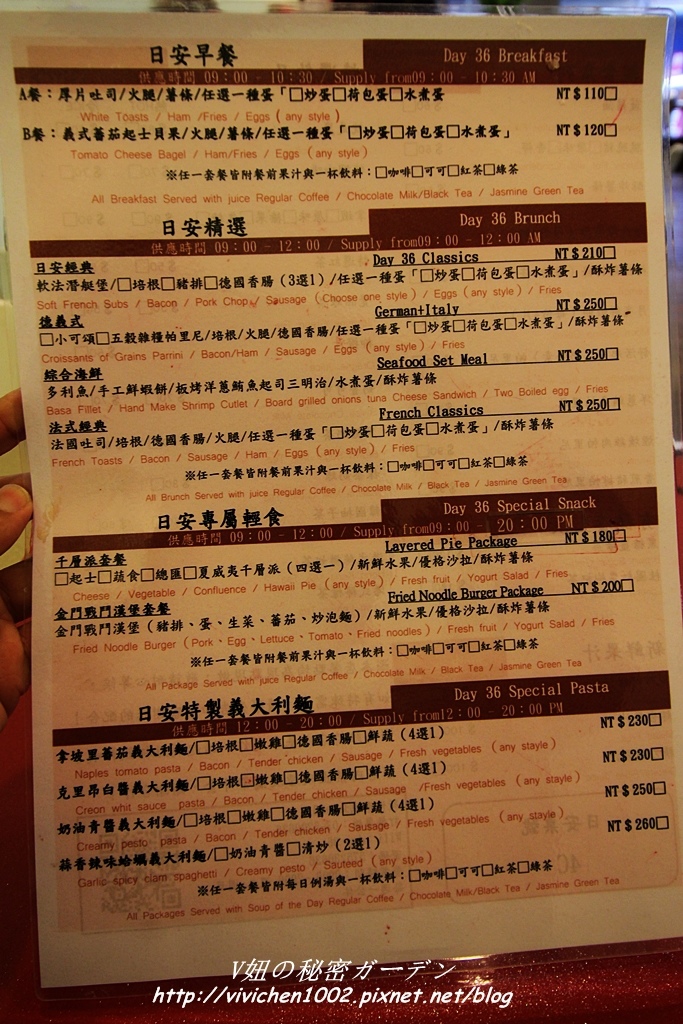 日安早餐 Day 36 Breakfast
供應時間 09:00 - 10:30 / Supply from09:00 - 10:30 AM
A餐：厚片吐司/火腿/薯條/任選一種蛋「□炒蛋□荷包蛋□水煮蛋 NT$110□
White Toasts / Ham /Fries / Eggs (any style)
B餐：義式蕃茄起士貝果/火腿/薯條/任選一種蛋「□炒蛋□荷包蛋□水煮蛋」 NT$120□
Tomato Cheese Bagel / Ham/Fries / Eggs (any style)
※任一套餐皆附餐前果汁與一杯飲料：□咖啡□可可□紅茶□綠茶
All Breakfast Served with juice Regular Coffee / Chocolate Milk/Black Tea / Jasmine Green Tea
日安精選 Day 36 Brunch
供應時間 09:00 - 12:00 / Supply from09:00 - 12:00 AM
日安經典 Day 36 Classics NT$210□
軟法潛艇堡/□培根□豬排□德國香腸(3選1)/任選一種蛋「□炒蛋□荷包蛋□水煮蛋」/酥炸薯條
Soft French Subs / Bacon / Pork Chop / Sausage (Choose one style) / Eggs (any style) / Fries
德義式 German+Italy NT$250□
□小可頌□五穀雜糧帕里尼/培根/火腿/德國香腸/任選一種蛋「□炒蛋□荷包蛋□水煮蛋」/酥炸薯條
Croissants of Grains Parrini / Bacon/Ham / Sausage / Eggs (any style) / Fries
綜合海鮮 Seafood Set Meal NT$250□
多利魚/手工鮮蝦餅/板烤洋蔥鮪魚起司三明治/水煮蛋/酥炸薯條
Basa Fillet / Hand Make Shrimp Cutlet / Board grilled onions tuna Cheese Sandwich / Two Boiled egg / Fries
法式經典 French Classics NT$250□
法國吐司/培根/德國香腸/火腿/任選一種蛋「□炒蛋□荷包蛋□水煮蛋」/酥炸薯條
French Toasts / Bacon / Sausage / Ham / Eggs (any style) / Fries
※任一套餐皆附餐前果汁與一杯飲料：□咖啡□可可□紅茶□綠茶
All Brunch Served with juice Regular Coffee / Chocolate Milk / Black Tea / Jasmine Green Tea
日安專屬輕食 Day 36 Special Snack
供應時間 09:00 - 12:00 / Supply from09:00 - 20:00 PM
千層派套餐 Layered Pie Package NT$180□
□起士□蔬食□總匯□夏威夷千層派(四選一)/新鮮水果/優格沙拉/酥炸薯條
Cheese / Vegetable / Confluence / Hawaii Pie (any style) / Fresh fruit / Yogurt Salad / Fries
金門戰鬥漢堡套餐 Fried Noodle Burger Package NT$200□
金門戰鬥漢堡(豬排、蛋、生菜、蕃茄、炒泡麵)/新鮮水果/優格沙拉/酥炸薯條
Fried Noodle Burger (Pork、Egg、Lettuce、Tomato、Fried noodles) / Fresh fruit / Yogurt Salad / Fries
※任一套餐皆附餐前果汁與一杯飲料：□咖啡□可可□紅茶□綠茶
All Package Served with juice Regular Coffee / Chocolate Milk / Black Tea / Jasmine Green Tea
日安特製義大利麵 Day 36 Special Pasta
供應時間 12:00 - 20:00 / Supply from12:00 - 20:00 PM
拿坡里蕃茄義大利麵/□培根□嫩雞□德國香腸□鮮蔬(4選1) NT$230□
Naples tomato pasta / Bacon / Tender chicken / Sausage / Fresh vegetables (any stayle)
克里昂白醬義大利麵/□培根□嫩雞□德國香腸□鮮蔬(4選1) NT$230□
Creon whit sauce pasta / Bacon / Tender chicken / Sausage /Fresh vegetables (any stayle)
奶油青醬義大利麵/□培根□嫩雞□德國香腸□鮮蔬(4選1) NT$250□
Creamy pesto pasta / Bacon / Tender chicken / Sausage / Fresh vegetables (any stayle)
蒜香辣味蛤蠣義大利麵/□奶油青醬□清炒(2選1) NT$260□
Garlic spicy clam spaghetti / Creamy pesto / Sauteed (any style)
※任一套餐皆附每日例湯與一杯飲料：□咖啡□可可□紅茶□綠茶
All Packages Served with Soup of the Day Regular Coffee / Chocolate Milk/Black Tea / Jasmine Green Tea
V妞の秘密ガーデン
http://vivichen1002.pixnet.net/blog